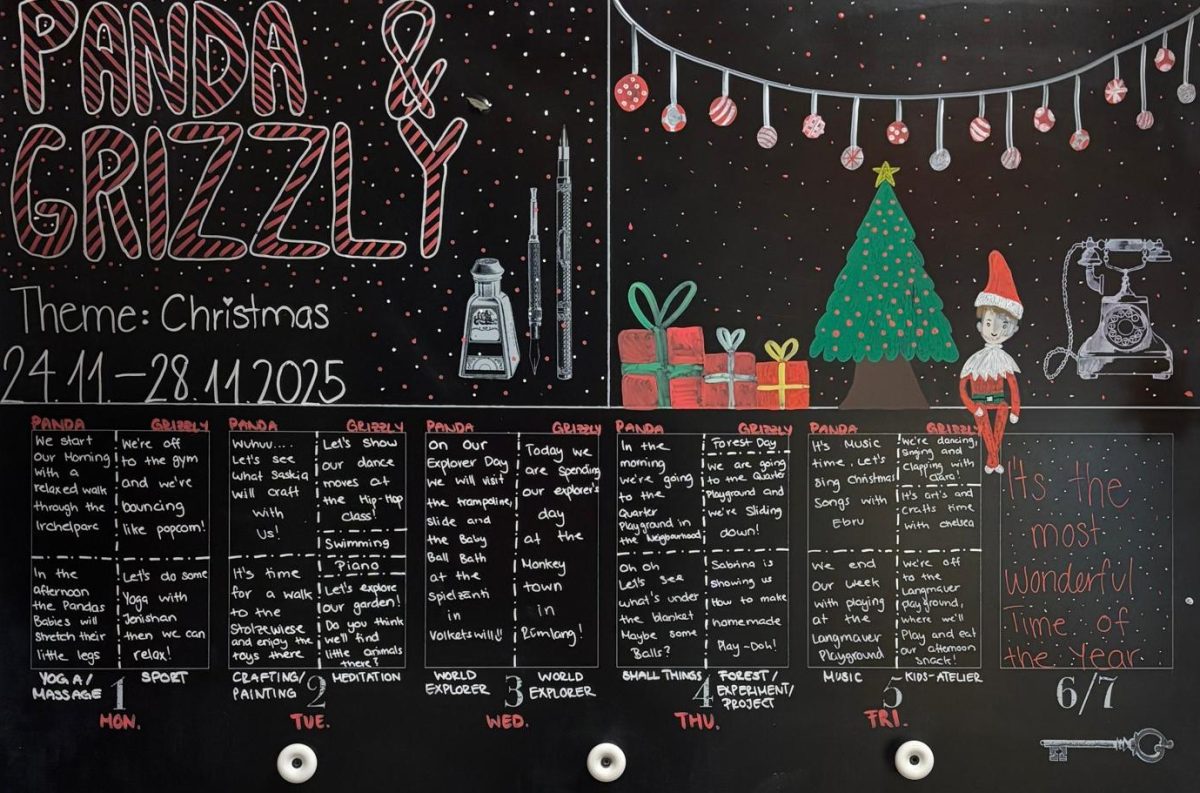 PANDA &
GRIZZLY
Theme: Christmas
24.11.-28.11.2025
PANDA
We start
Our Morning
with a
relaxed walk
through the
Irchelparc
In the
afternoon
the Pandas
Babies will
Stretch their
little legs
YOGA/
MASSAGE
GRIZZLY
We're off
to the gym
and we're
bouncing
like popcorn!
Let's do some
Yoga with
Jenishan
then we can
relax!
SPORT
1
MON.
PANDA
Wuhuu....
Let's see
what Saskia
will craft
with
Us!
It's time
for a walk
to the
Stolzewiese
and enjoy the
toys there
CRAFTING/
PAINTING
GRIZZLY
Let's show
our dance
moves at
the Hip-Hop
class!
Swimming
Piano
Let's explore
our garden!
Do you think
we'll find
little animals
there?
MEDITATION
2
TUE.
PANDA
On Our
Explorer Day
we will visit
the trampoline,
Slide and
the Baby
Ball Bath
at the
Spielzänti
in
Volketswill!!
WORLD
EXPLORER
GRIZZLY
Today we
are spending
our explorer's
day
at the
Monkey
town
in
Rümlang!
WORLD
EXPLORER
3
WED.
PANDA
In the
morning
we're going
to the
Quartier
Playground in
the Neighbourhood
Oh oh
Let's see
what's under
the blanket
Maybe some
Balls?
SMALL THINGS
GRIZZLY
Forest Day
We are going
to the Quartier
Playground and
we're Sliding
down!
Sabrina is
showing us
How to make
homemade
Play-Doh!
FOREST/
EXPERIMENT/
PROJECT
4
THU.
PANDA
It's Music
time, Let's
Sing Christmas
Songs with
Ebru
We end
Our Week
with playing
at the
Langmauer
Playground
MUSIC
GRIZZLY
We're dancing,
singing and
Clapping with
Clara!
It's art's and
Crafts time
with chelsea
We're off
to the
Langmauer
playground,
where we'll
Play and eat
our afternoon
snack!
KIDS-ATELIER
5
FRI.
It's the
most
wonderful
Time of
the Year
6/7